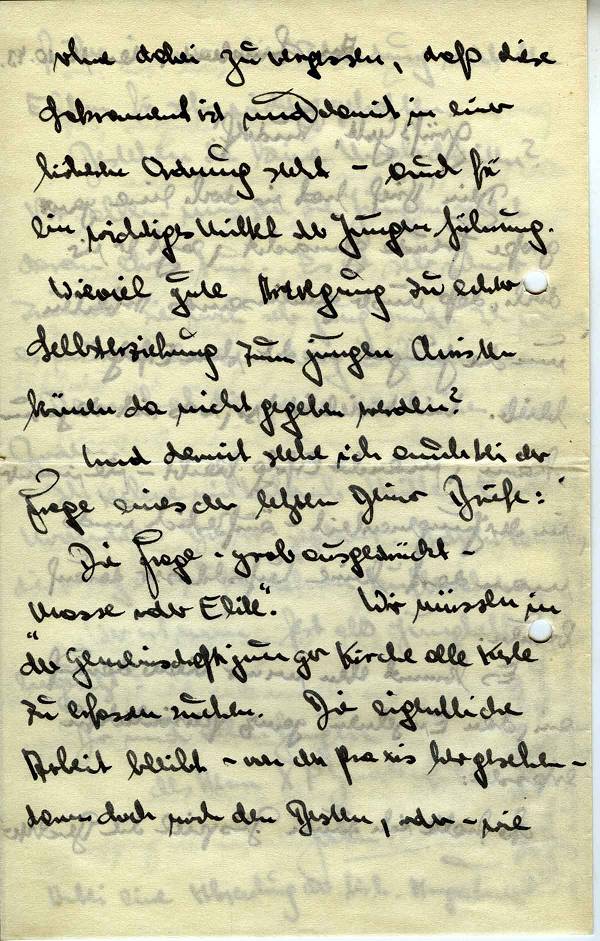 ohne dabei zu vergessen, daß diese
Sakrament ist und damit in einer
höheren Ordnung steht – auch für
ein wichtiges Mittel der Jungenführung.
Wieviel gute Anregung zu echter
Selbsterziehung zum jungen Christen
können da nicht gegeben werden?
Und damit stehe ich auch bei der
Frage eines der letzten Deiner Briefe:
Die Frage – grob ausgedrückt –
"Masse oder Elite". Wir müssen in
der Gemeinschaft junger Kirche alle Kerle
zu erfassen suchen. Die eigentliche
Arbeit bleibt – von der Praxis hergesehen –
dann doch mit den Besten, oder – wie